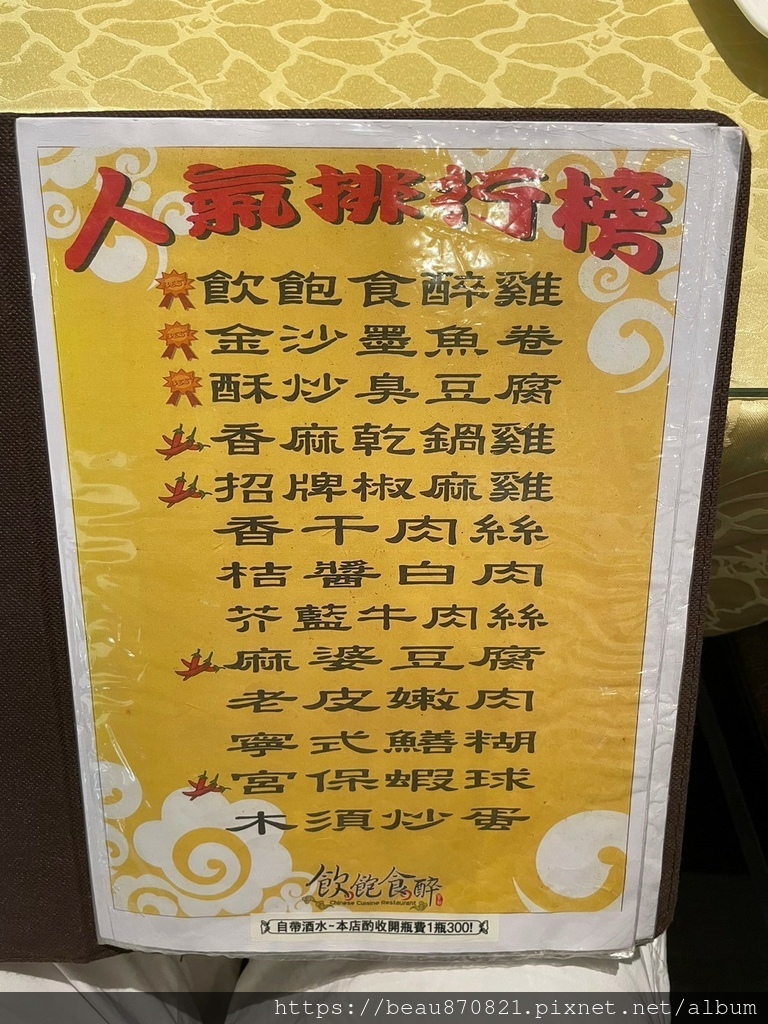 人氣排行榜
飲飽食醉雞
金沙墨魚卷
酥炒臭豆腐
香麻乾鍋雞
招牌椒麻雞
香干肉絲
桔醬白肉
芥藍牛肉絲
麻婆豆腐
老皮嫩肉
寧式鱔糊
宮保蝦球
木須炒蛋
飲飽食醉
Chinese Cuisine Restaurant
自帶酒水-本店酌收開瓶費1瓶300!
https://beau870821.pixnet.net/album